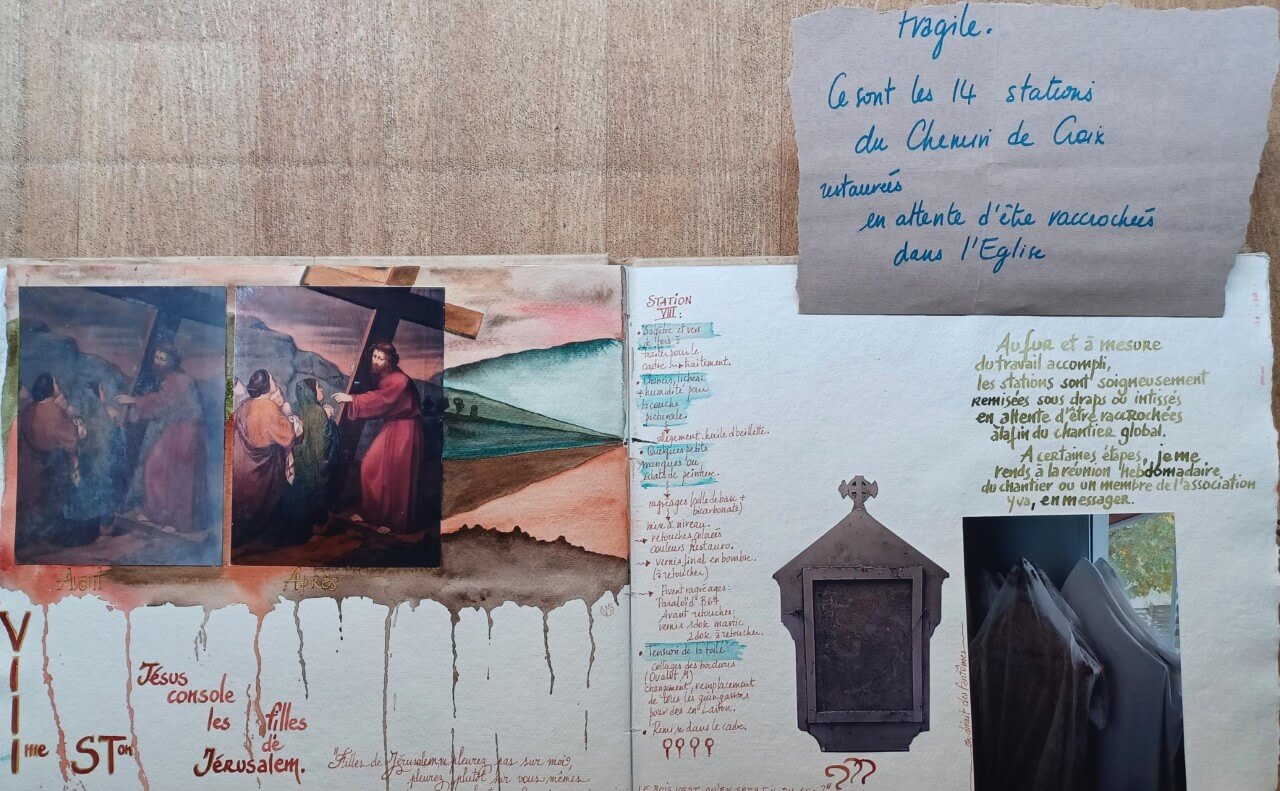 fragile.
Ce sont les 14 stations
du Chemin de Croix
restaurées
en attente d'être raccrochées
dans l'Eglise
Avant
Après
VIII me STon
Jésus
console
les filles
de
Jérusalem.
"Filles de Jérusalem ne pleurez pas sur moi,
pleurez plutôt sur vous-mêmes
STATION
VIII :
Salpêtre et vers
de bois à
traiter sur le
cadre traitement.
lichen
+ humidité pour
la couche
picturale.
allègement huile d'oeillette.
• Quelques petits
manques ou
éclats de peinture.
ragréages (colle de base +
carbonate)
mix à niveau.
retouches colorées
couleurs restauro.
vernis final en bombe.
(à retoucher)
Avant ragréages :
Paraloïd B64
Avant retouches :
vernis 1 dose mavic
2 dose à retoucher.
• Tension de la toile
collages des bordures
changement, remplacement
de tous les guingassons
pour des en Laiton.
• Remise dans le cadre.
???
LE BOIS VERT QU'EN SERA
Au fur et à mesure
du travail accompli,
les stations sont soigneusement
remisées sous draps ou intissés
en attente d'être raccrochées
à la fin du chantier global.
A certaines étapes, je me
rends à la réunion hebdomadaire
du chantier ou un membre de l'association
Yva, en messager.
on dirait des fantômes